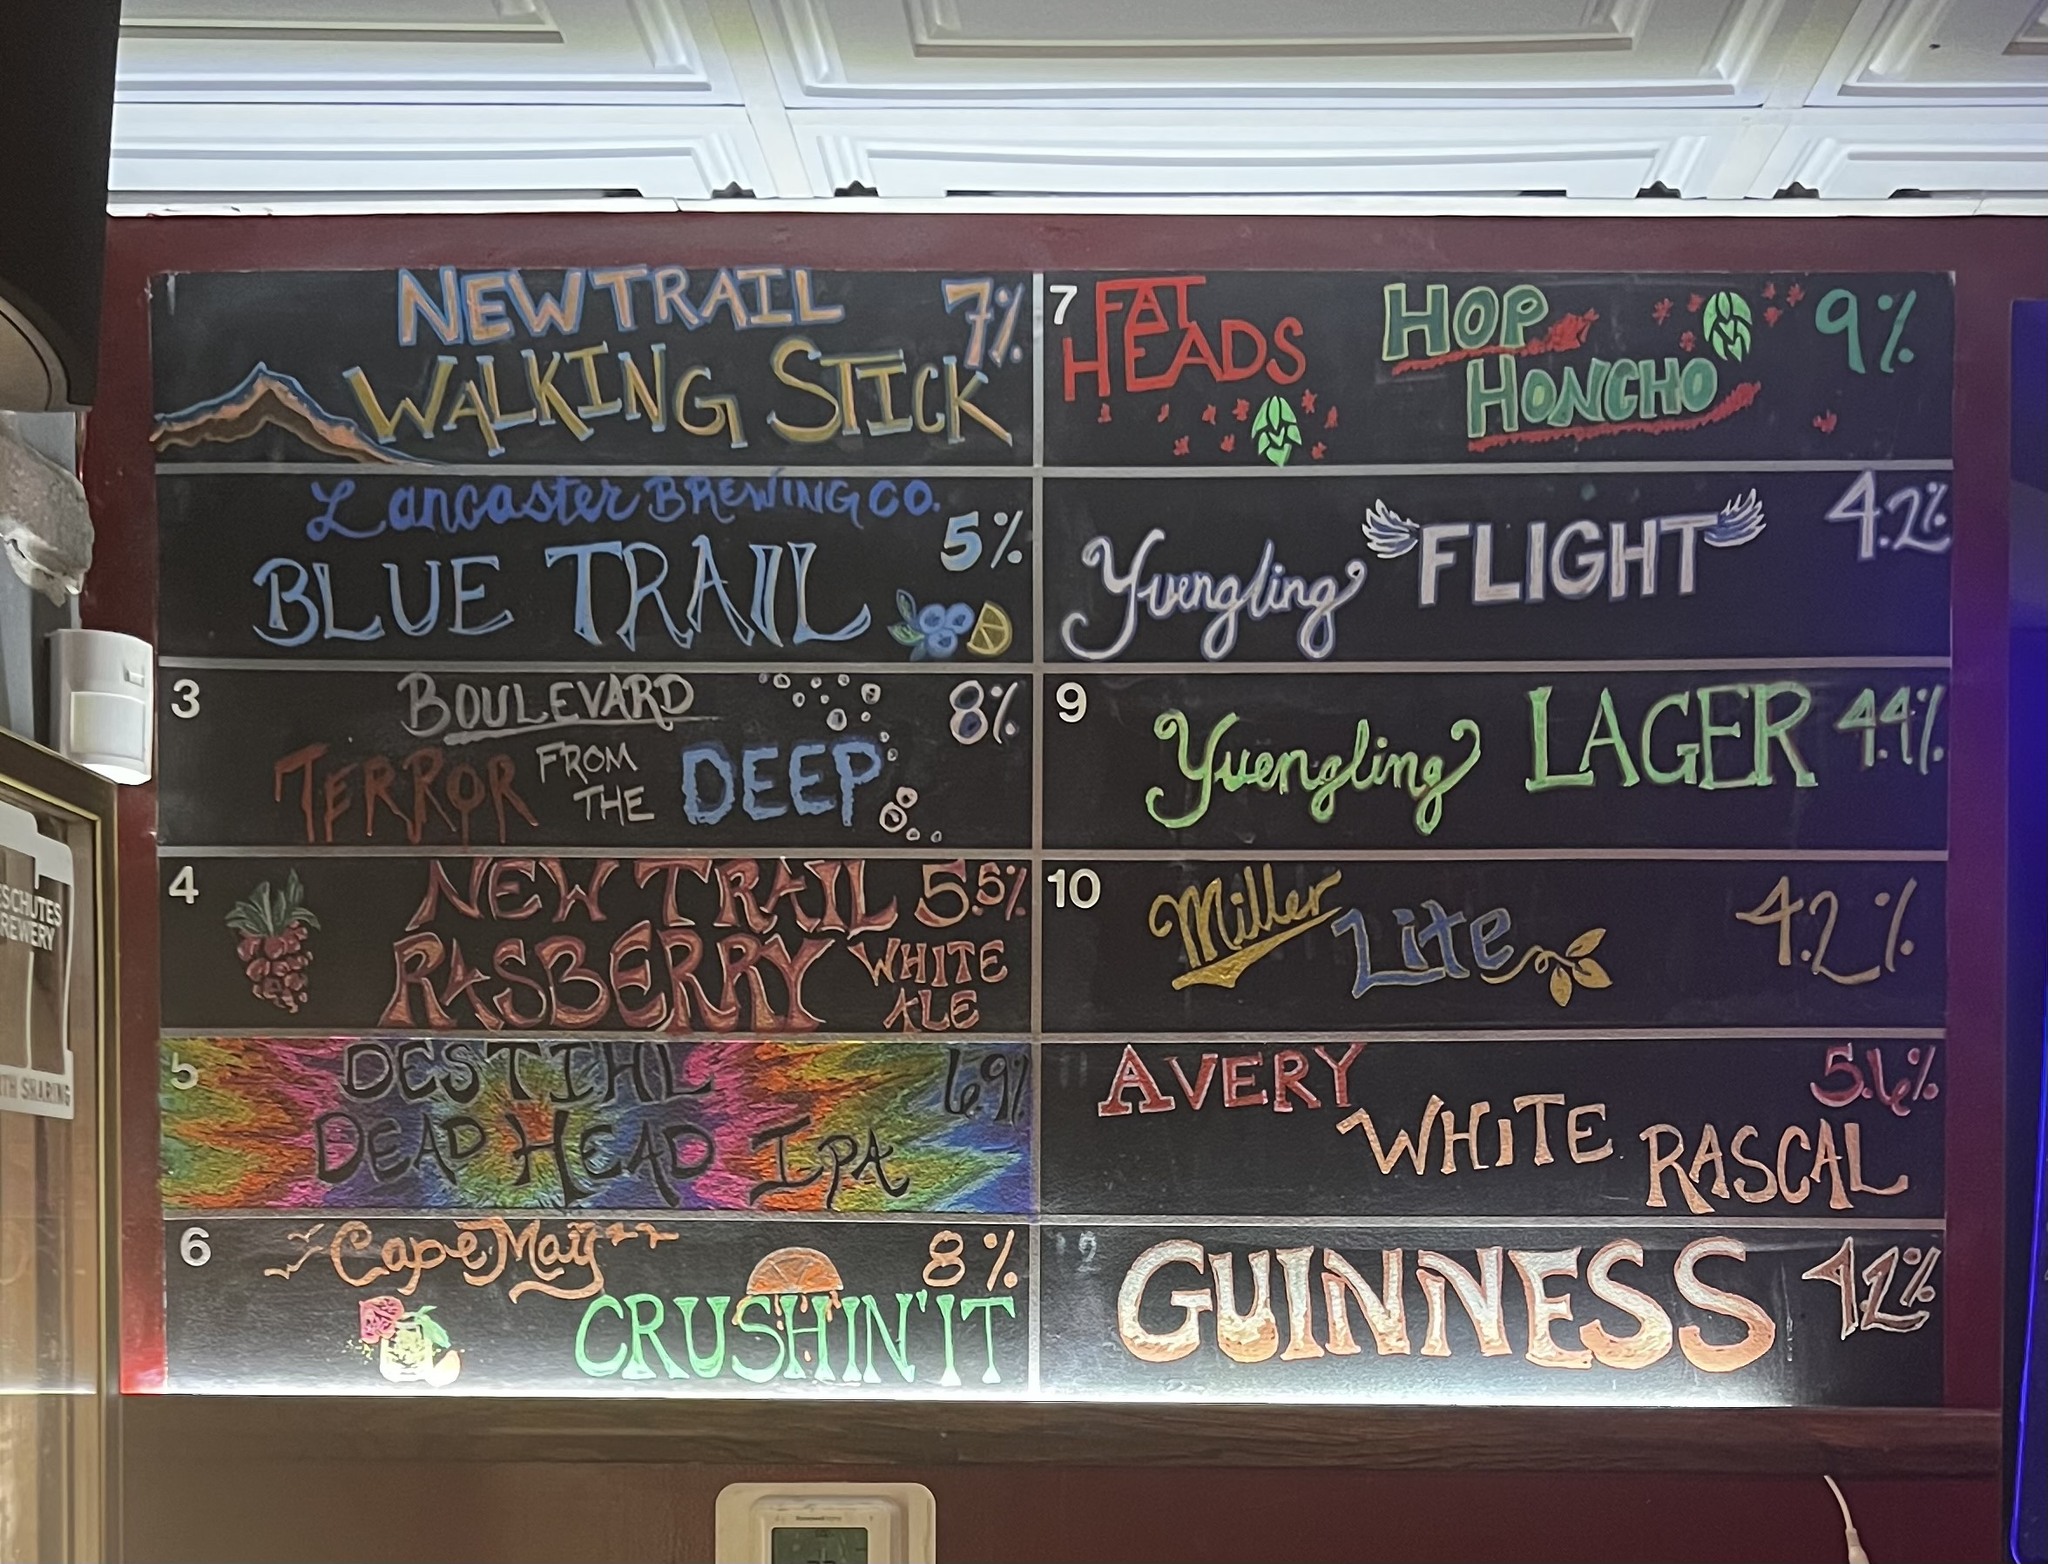 1
NEW TRAIL
7%
WALKING STICK
Lancaster BREWING CO.
5%
BLUE TRAIL
3
BOULEVARD
8%
TERROR FROM THE DEEP
4
NEW TRAIL
5.5%
RASBERRY WHITE ALE
5
DESTIHL
6.9%
DEAD HEAD IPA
6
Cape May
8%
CRUSHIN'IT
7
FAT HEADS
HOP HONCHO
9%
Yuengling FLIGHT
4.2%
9
Yuengling LAGER
4.4%
10
Miller Lite
4.2%
AVERY
5.6%
WHITE RASCAL
12
GUINNESS
4.2%
SCHUTES
REWERY
TH SHARING